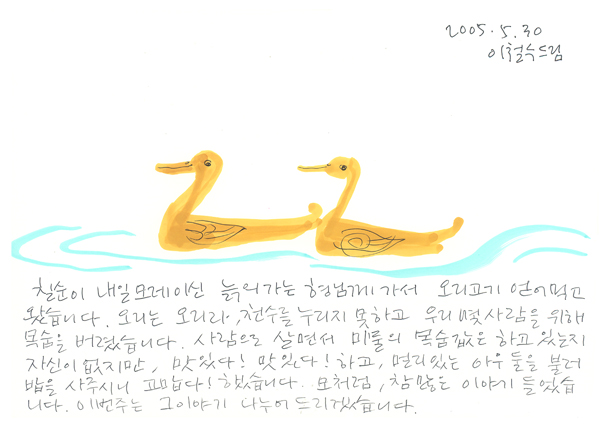 2005.5.30
이철수드림
칠순이 내일모레이신 늙어가는 형님께 가서 오리고기 얻어먹고
왔습니다. 오리는 오리라, 천수를 누리지 못하고 우리 몇사람을 위해
목숨을 버렸습니다. 사람으로 살면서 미물의 목숨값은 하고 있는지
자신이 없지만, 맛있다! 맛있다! 하고, 멀리있는 아우 둘을 불러
밥을 사주시니 고맙다! 했습니다. 모처럼, 참 많은 이야기 들었습
니다. 이번주는 그이야기 나누어 드리겠습니다.